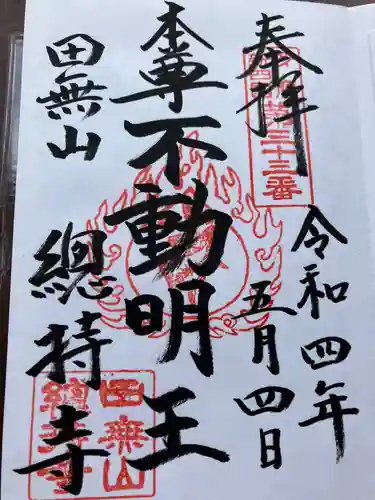 奉拝
三十三番
令和四年
五月四日
本尊不動明王
田無山
總持寺
田無山
總持寺